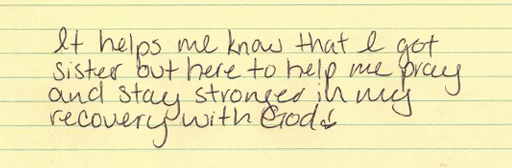 It helps me know that I got
sister but here to help me pray
and stay stronger in my
recovery with God.